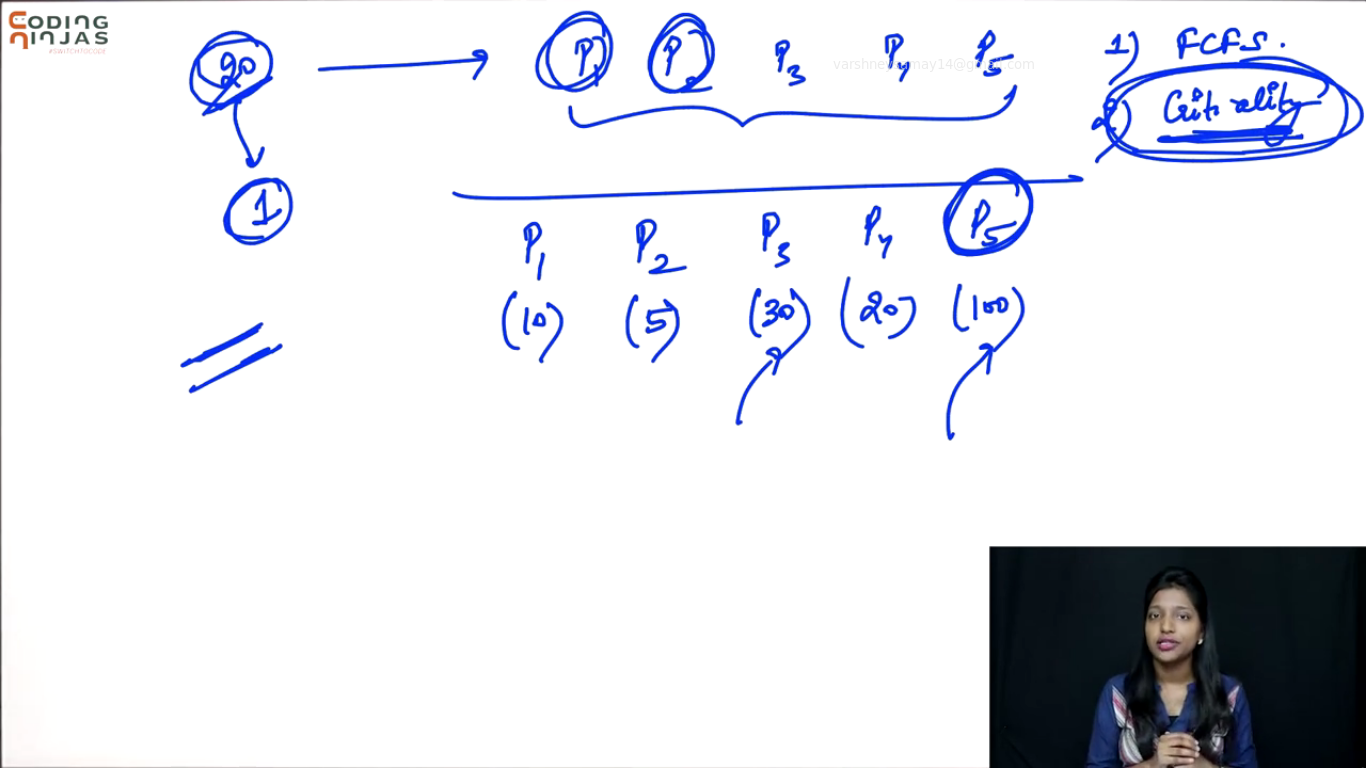 CODING
NINJAS
#SWITCHTOCODE
20
P1 P2 P3 P4 P5
varshneysamay14@gmail.com
1) FCFS.
2) Criticality
1
P1 P2 P3 P4 P5
(10) (5) (30) (20) (100)